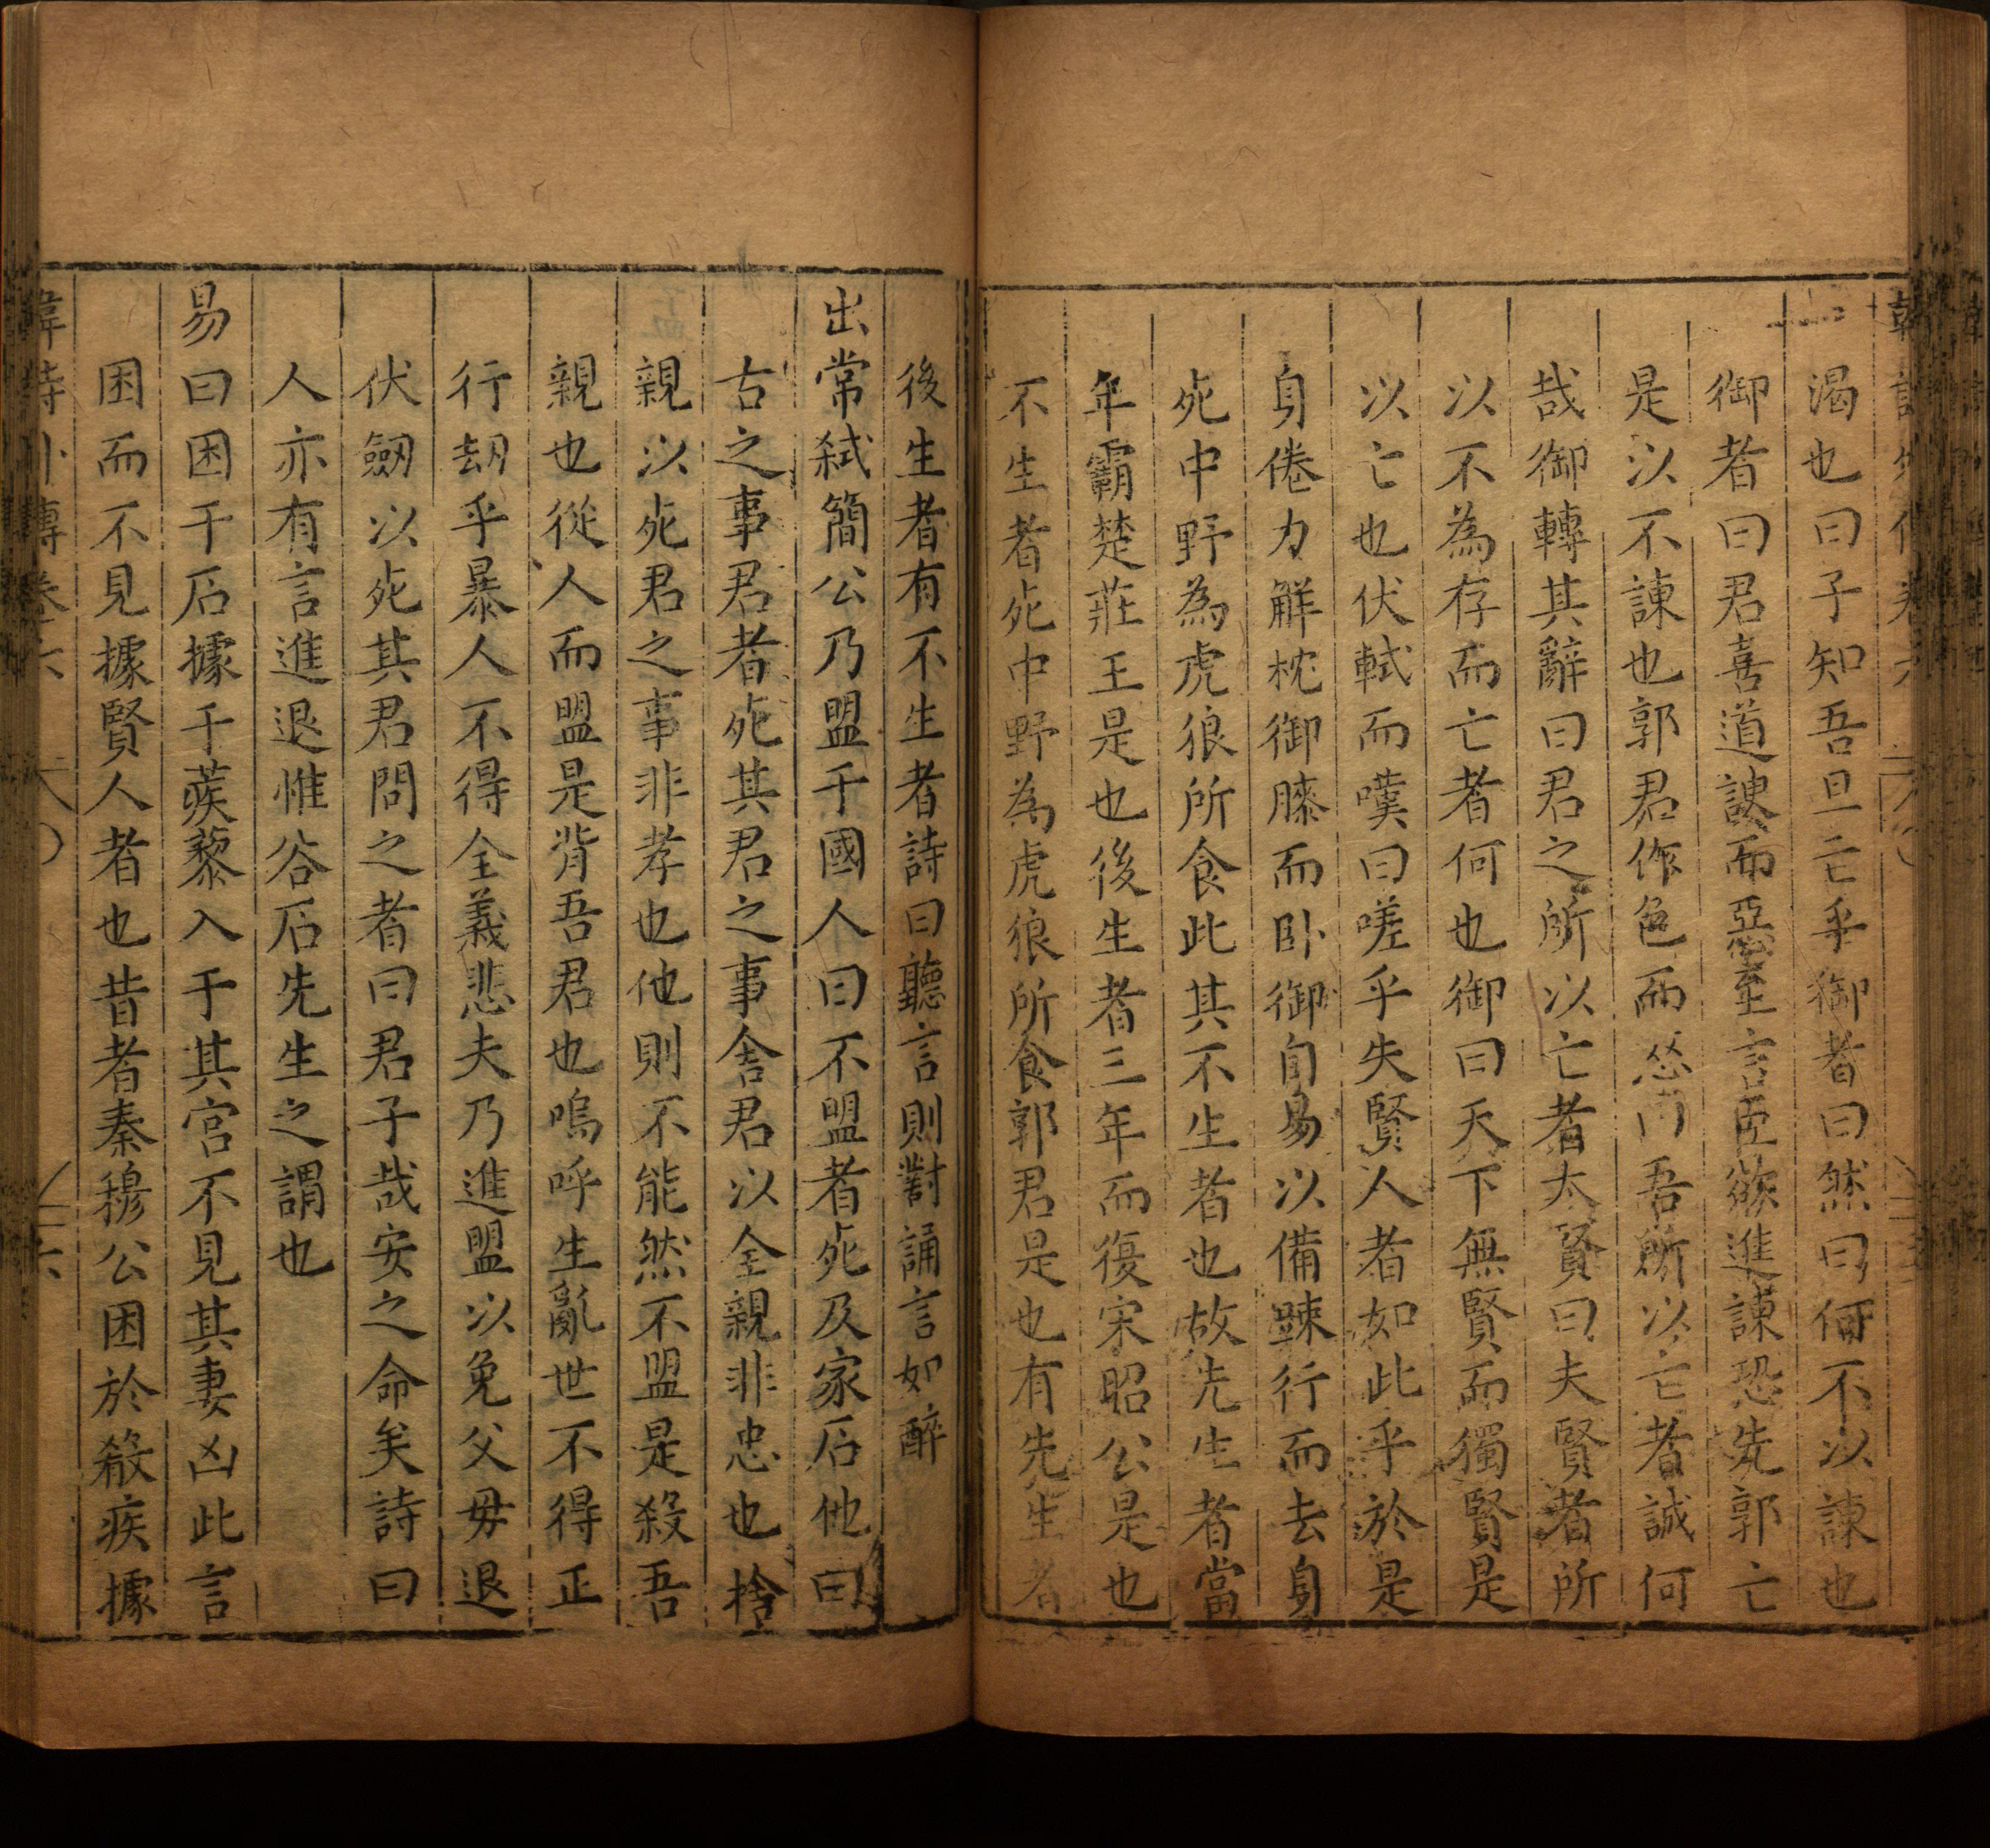 渴也曰子知吾且亡乎御者曰然曰何不以諫也
御者曰君喜道諛而惡至言臣欲進諫恐先郭亡
是以不諫也郭君作色而怒曰吾所以亡者誠何
哉御轉其辭曰君之所以亡者太賢曰夫賢者所
以不為存而亡者何也御曰天下無賢而獨賢是
以亡也伏軾而嘆曰嗟乎失賢人者如此乎於是
身倦力解枕御膝而卧御自易以備踈行而去身
死中野為虎狼所食此其不生者也故先生者當
年霸楚莊王是也後生者三年而復宋昭公是也
不生者死中野為虎狼所食郭君是也有先生者
後生者有不生者詩曰聽言則對誦言如醉
出常弑簡公乃盟于國人曰不盟者死及家石他曰
古之事君者死其君之事舍君以全親非忠也捨
親以死君之事非孝也他則不能然不盟是殺吾
親也從人而盟是背吾君也嗚呼生亂世不得正
行劫乎暴人不得全義悲夫乃進盟以免父毋退
伏劒以死其君問之者曰君子哉安之命矣詩曰
人亦有言進退惟谷石先生之謂也
易曰困于石據于蒺藜入于其宮不見其妻凶此言
困而不見據賢人者也昔者秦穆公困於殽疾據